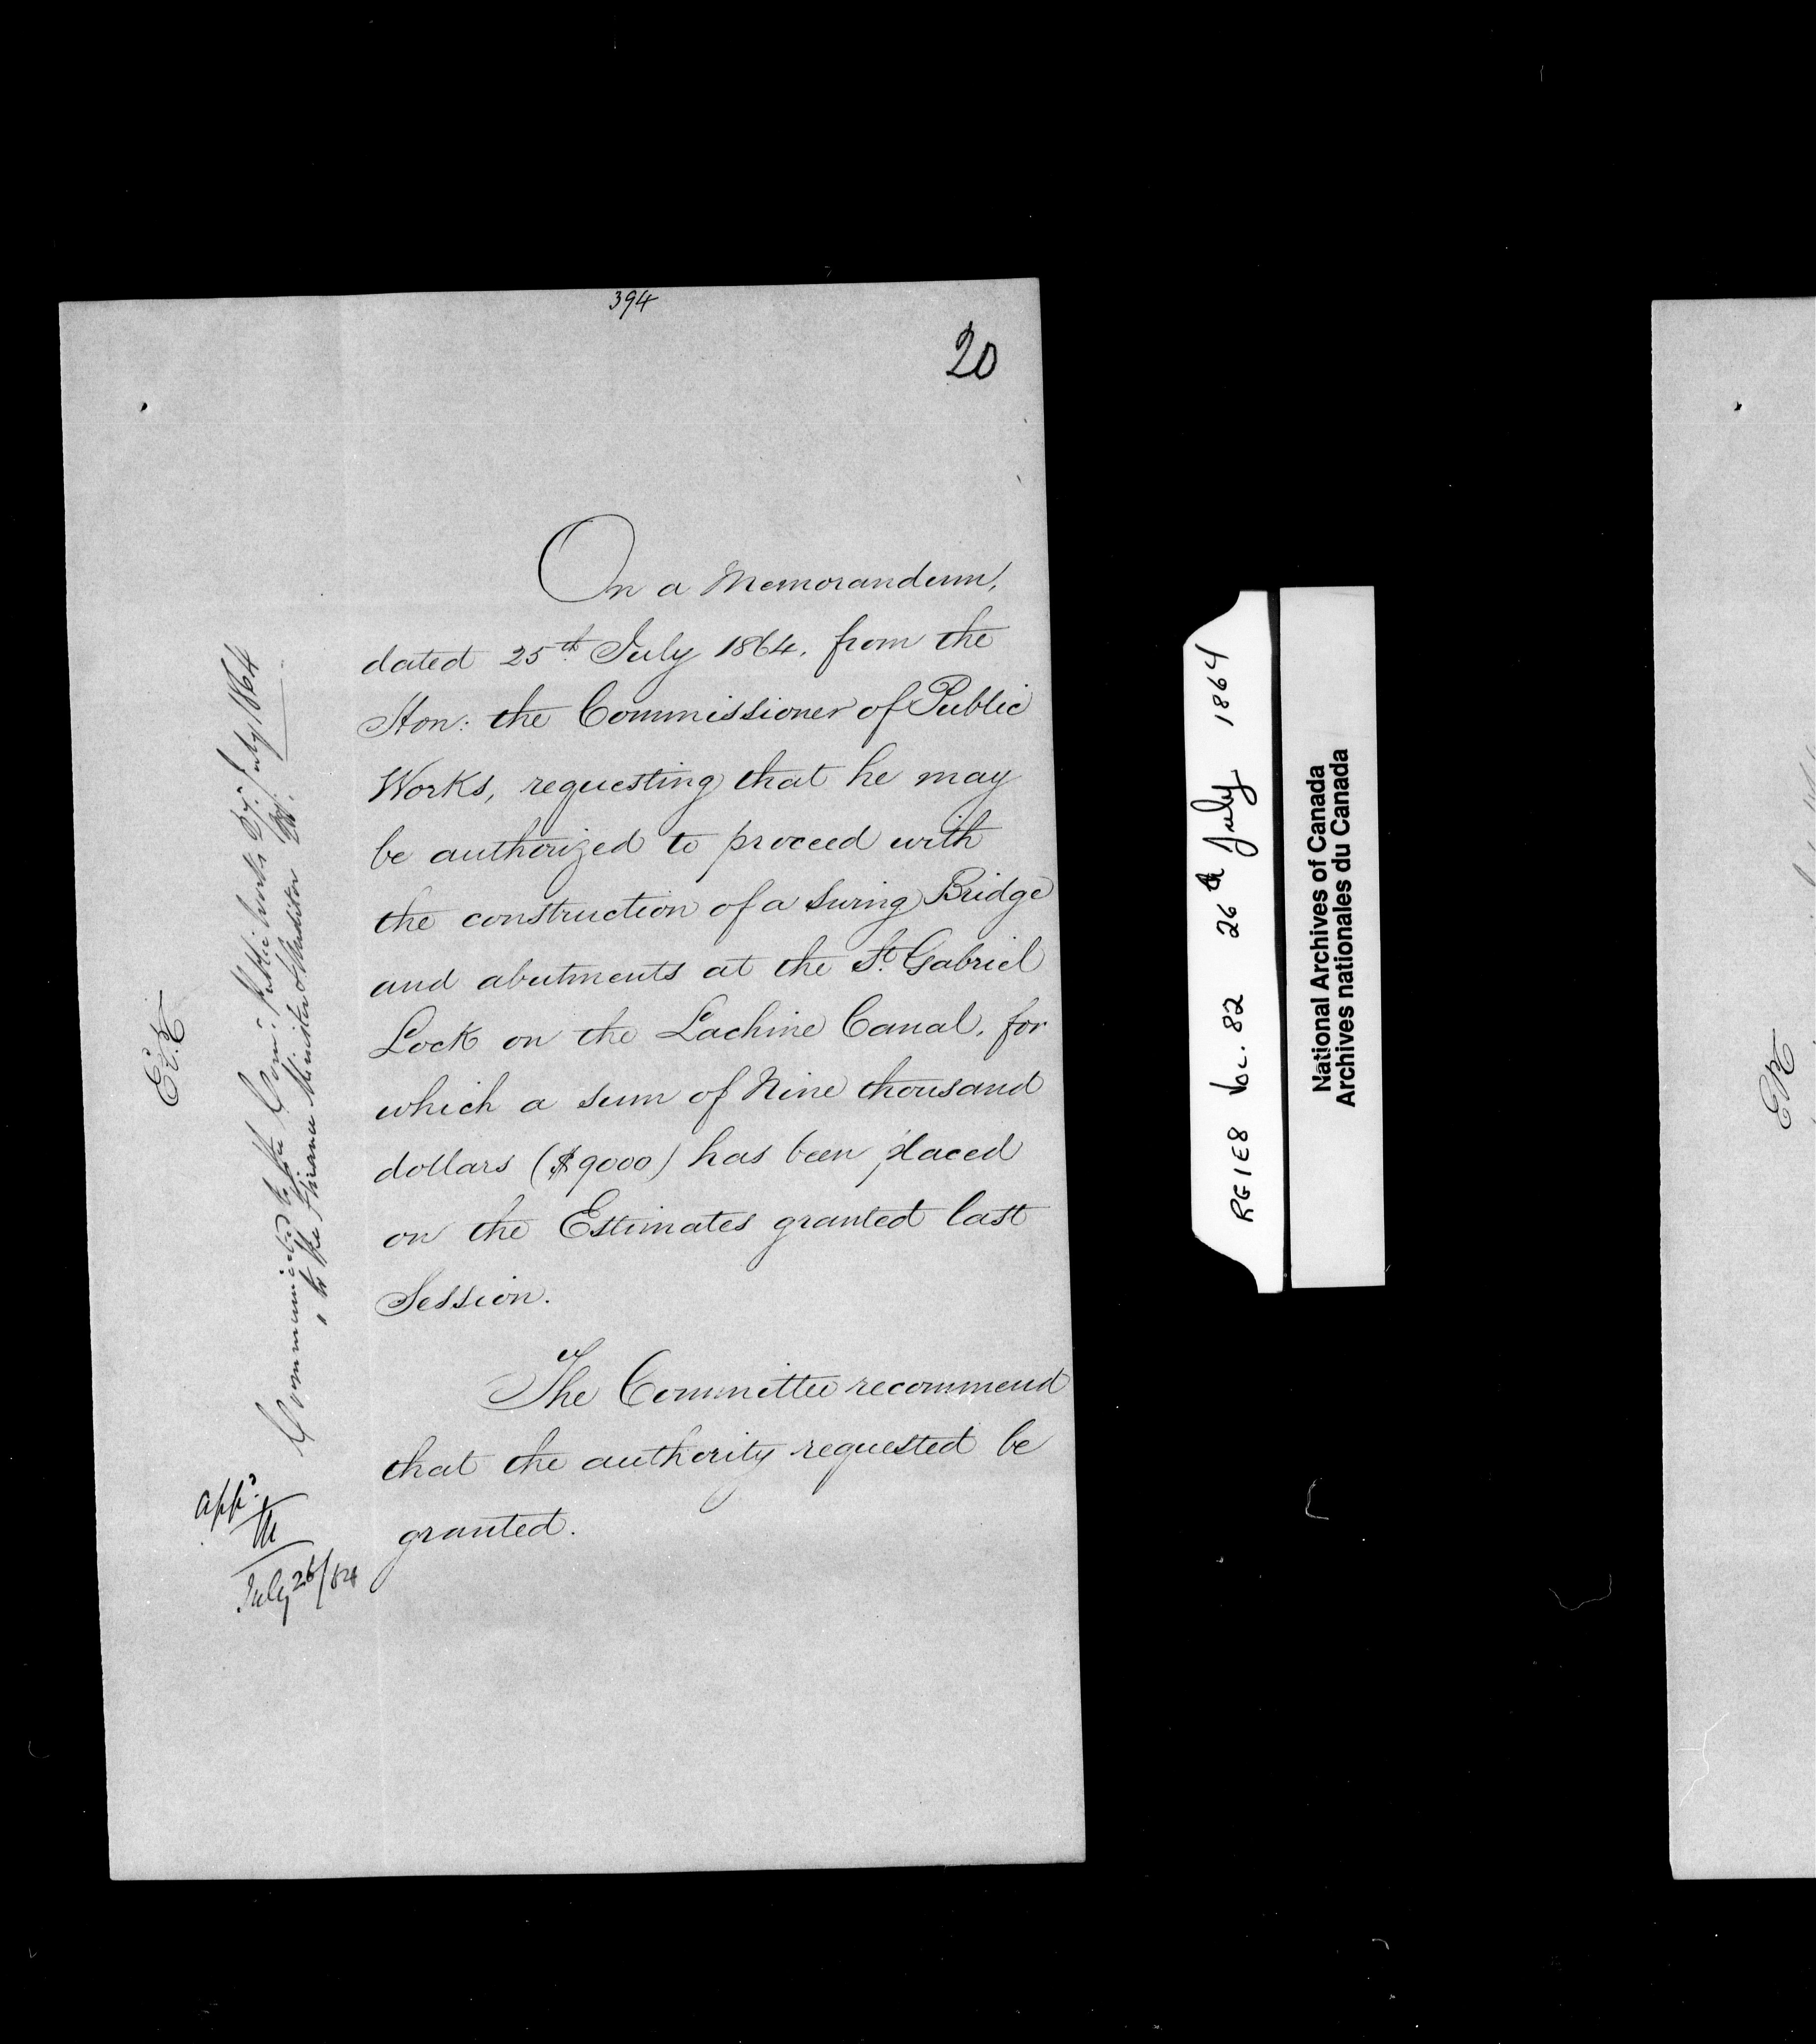 394
20
On a Memorandum,
dated 25th July 1864, from the
Hon: the Commissioner of Public
Works, requesting that he may
be authorized to proceed with
the construction of a Swing Bridge
and abutments at the St. Gabriel
Lock on the Lachine Canal, for
which a sum of Nine thousand
dollars ($9000) has been placed
on the Estimates granted last
Session.
The Committee recommend
that the authority requested be
granted.
Communicated to the Comr. Public Works 27. July 1864
" to the Finance Minister & Auditor
appd.
M
July 26/64
RG1E8 Vol. 82 26th July 1864
National Archives of Canada
Archives nationales du Canada